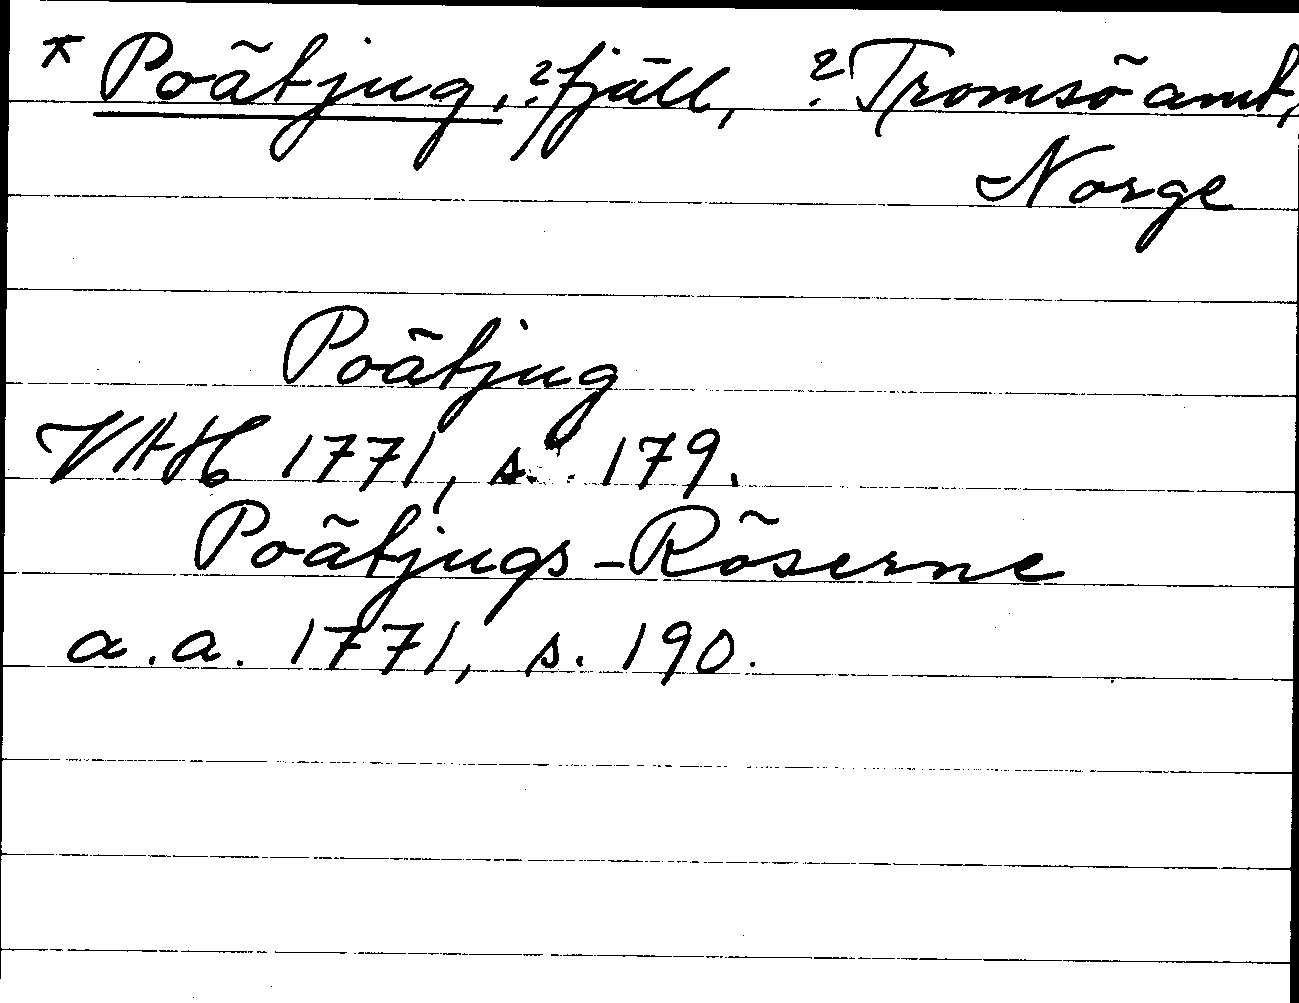 * Poätjug, ?fjäll, ?Tromsö amt,
Norge
Poätjug
VAH 1771, s. 179.
Poätjugs-Röserne
a.a. 1771, s. 190.